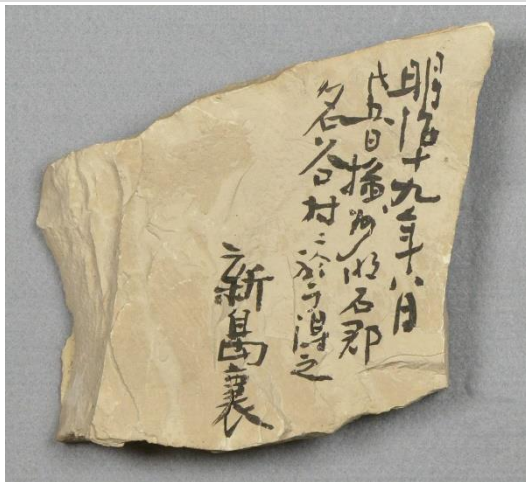 明治十九年八月
廿五日播州明石郡
名谷村ニ於テ得之
新島襄